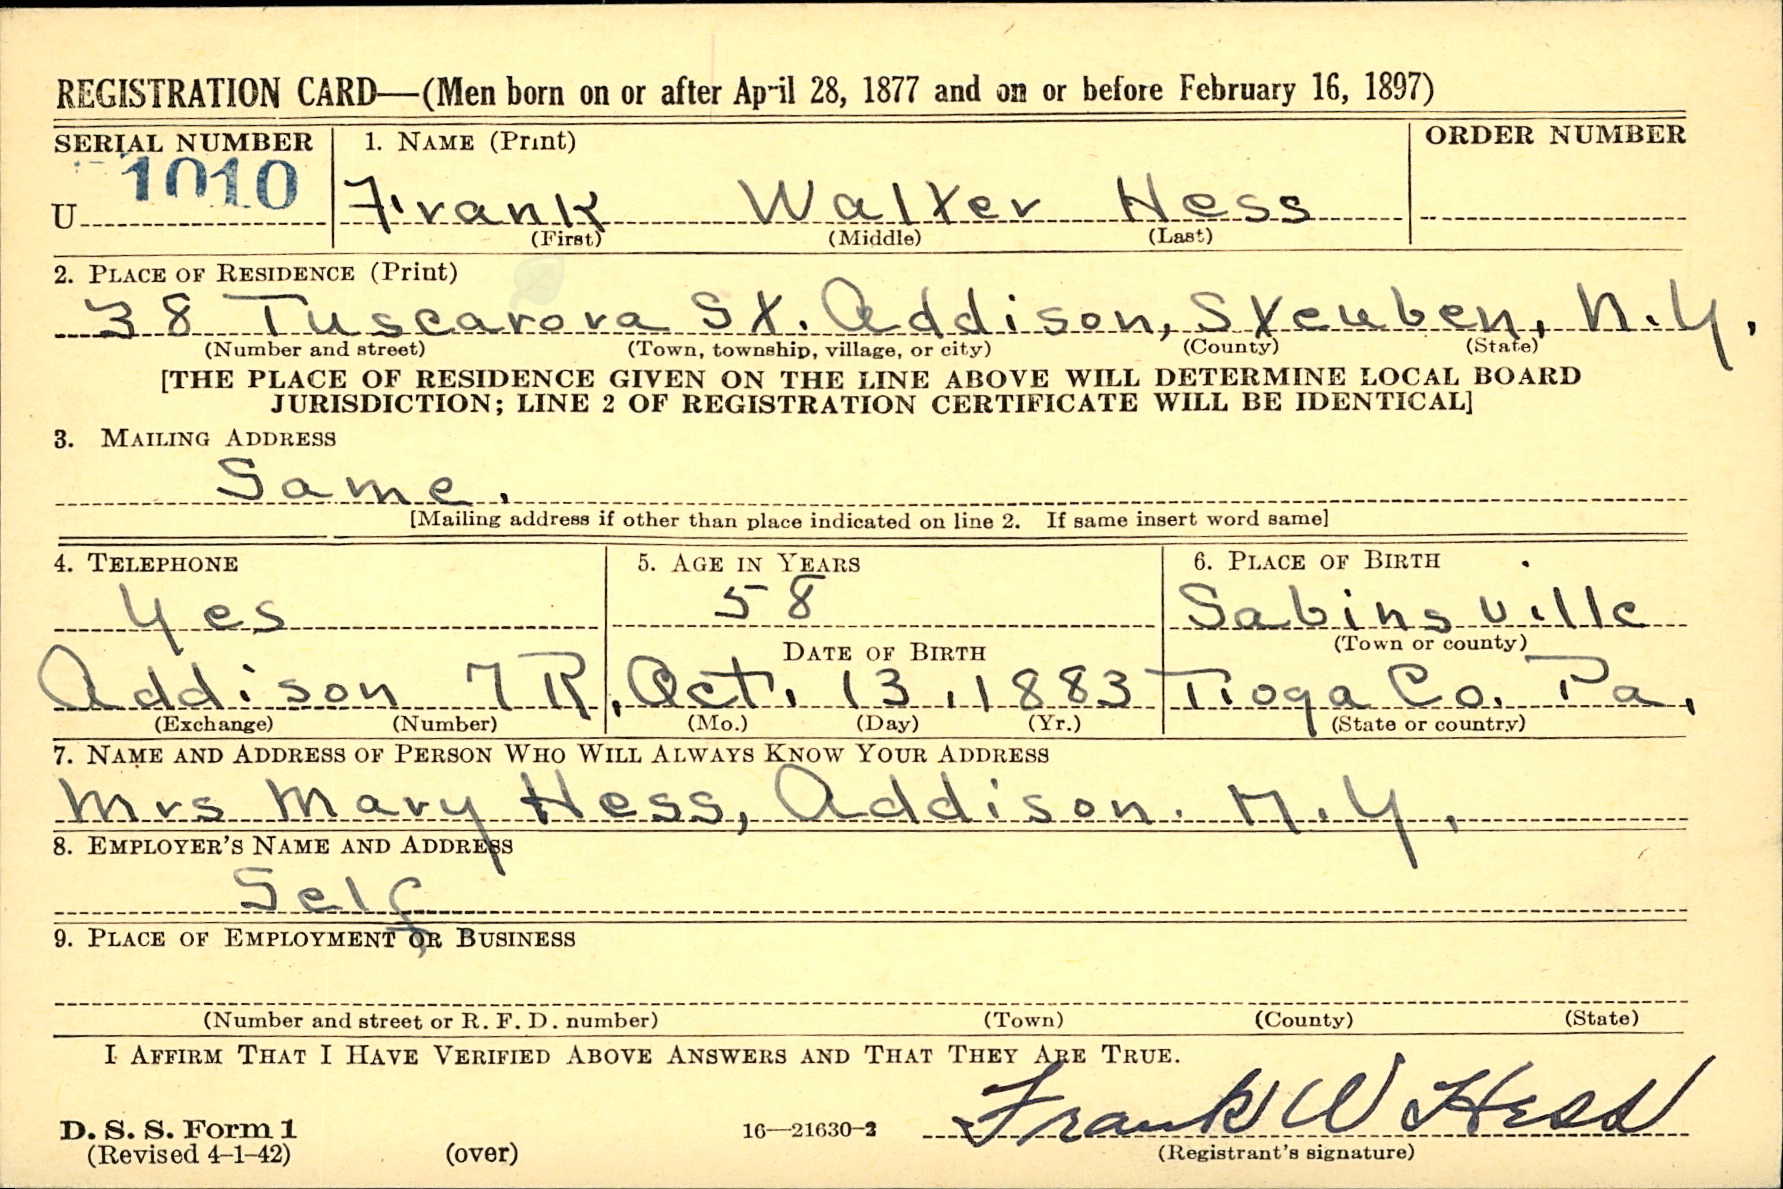 REGISTRATION CARD—(Men born on or after April 28, 1877 and on or before February 16, 1897)
SERIAL NUMBER 1. NAME (Print) ORDER NUMBER
U 1010 Frank Walter Hess
(First) (Middle) (Last)
2. PLACE OF RESIDENCE (Print)
38 Tuscarora St. Addison, Steuben, N.Y.
(Number and street) (Town, township, village, or city) (County) (State)
[THE PLACE OF RESIDENCE GIVEN ON THE LINE ABOVE WILL DETERMINE LOCAL BOARD
JURISDICTION; LINE 2 OF REGISTRATION CERTIFICATE WILL BE IDENTICAL]
3. MAILING ADDRESS
Same.
[Mailing address if other than place indicated on line 2. If same insert word same]
4. TELEPHONE 5. AGE IN YEARS 6. PLACE OF BIRTH
Yes 58 Sabinsville
DATE OF BIRTH (Town or county)
Addison 7R, Oct. 13, 1883 Tioga Co. Pa.
(Exchange) (Number) (Mo.) (Day) (Yr.) (State or country)
7. NAME AND ADDRESS OF PERSON WHO WILL ALWAYS KNOW YOUR ADDRESS
Mrs Mary Hess, Addison. N.Y.
8. EMPLOYER'S NAME AND ADDRESS
Self
9. PLACE OF EMPLOYMENT OR BUSINESS
(Number and street or R. F. D. number) (Town) (County) (State)
I AFFIRM THAT I HAVE VERIFIED ABOVE ANSWERS AND THAT THEY ARE TRUE.
Frank W Hess
D. S. S. Form 1
(Revised 4-1-42) (over) 16—21630-2 (Registrant's signature)